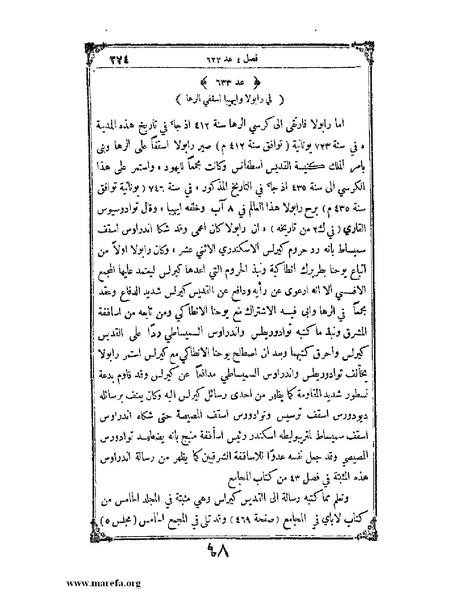 فصل ٤ عد ٦٢٣ ٣٧٤
﴿ عد ٦٣٣ ﴾
( في رابولا وايهيبا اسقفي الرها )
اما رابولا فارتقى الى كرسي الرها سنة ٤١٢ اذ جاء في تاريخ هذه المدينة
، في سنة ٧٢٣ يونانية ( توافق سنة ٤١٢ م ) صير رابولا اسقفًا على الرها وبنى
بامر الملك كنيسة القديس اسطفانس وكانت مجمعًا لليهود ، واستمر على هذا
الكرسي الى سنة ٤٣٥ اذ جاء في التاريخ المذكور ، في سنة ٧٤٦ ( يونانية توافق
سنة ٤٣٥ م ) برح رابولا هذا العالم في ٨ آب وخلفه ايهيبا ، وقال توادوسيوس
القاري ( في ك٢ من تاريخه ) ، ان رابولا كان اعمى وقد شكا اندراوس اسقف
سميساط بانه رد حروم كيرلس الاسكندري الاثني عشر ، وكان رابولا اولاً من
اتباع يوحنا بطريرك انطاكية ونبذ الحروم التي اعدها كيرلس ليعتمد عليها المجمع
الافسسي الا انه ارعوى عن رأيه ودافع عن القديس كيرلس شديد الدفاع وعقد
مجمعًا في الرها وابى فيه الاشتراك مع يوحنا الانطاكي ومن تابعه من اساقفة
المشرق ونبذ ما كتبه توادوريطس واندراوس السميساطي ردًا على القديس
كيرلس واحرق كتبهما وبعد ان اصطلح يوحنا الانطاكي مع كيرلس استمر رابولا
يخالف توادوريطس واندراوس السميساطي مدافعًا عن كيرلس وقد قاوم بدعة
نسطور شديد المقاومة كما يظهر من احدى رسائل كيرلس اليه وكان يعنف برسائله
ديودورس اسقف ترسيس وتوادورس اسقف المصيصة حتى شكاه اندراوس
اسقف سميساط لمتربوليطه اسكندر رئيس اساقفة منبج بانه يضطهد توادورس
المصيصي وقد جعل نفسه عدوًا للاساقفة الشرقيين كما يظهر من رسالة اندراوس
هذه المثبتة في فصل ٤٣ من كتاب المجامع
ونعلم مما كتبه رسالة الى القديس كيرلس وهي مثبتة في المجلد الخامس من
كتاب لاباي في المجامع ( صفحة ٤٦٩ ) وقد تلي في المجمع الخامس ( مجلس ٥ )
٤٨
www.marefa.org